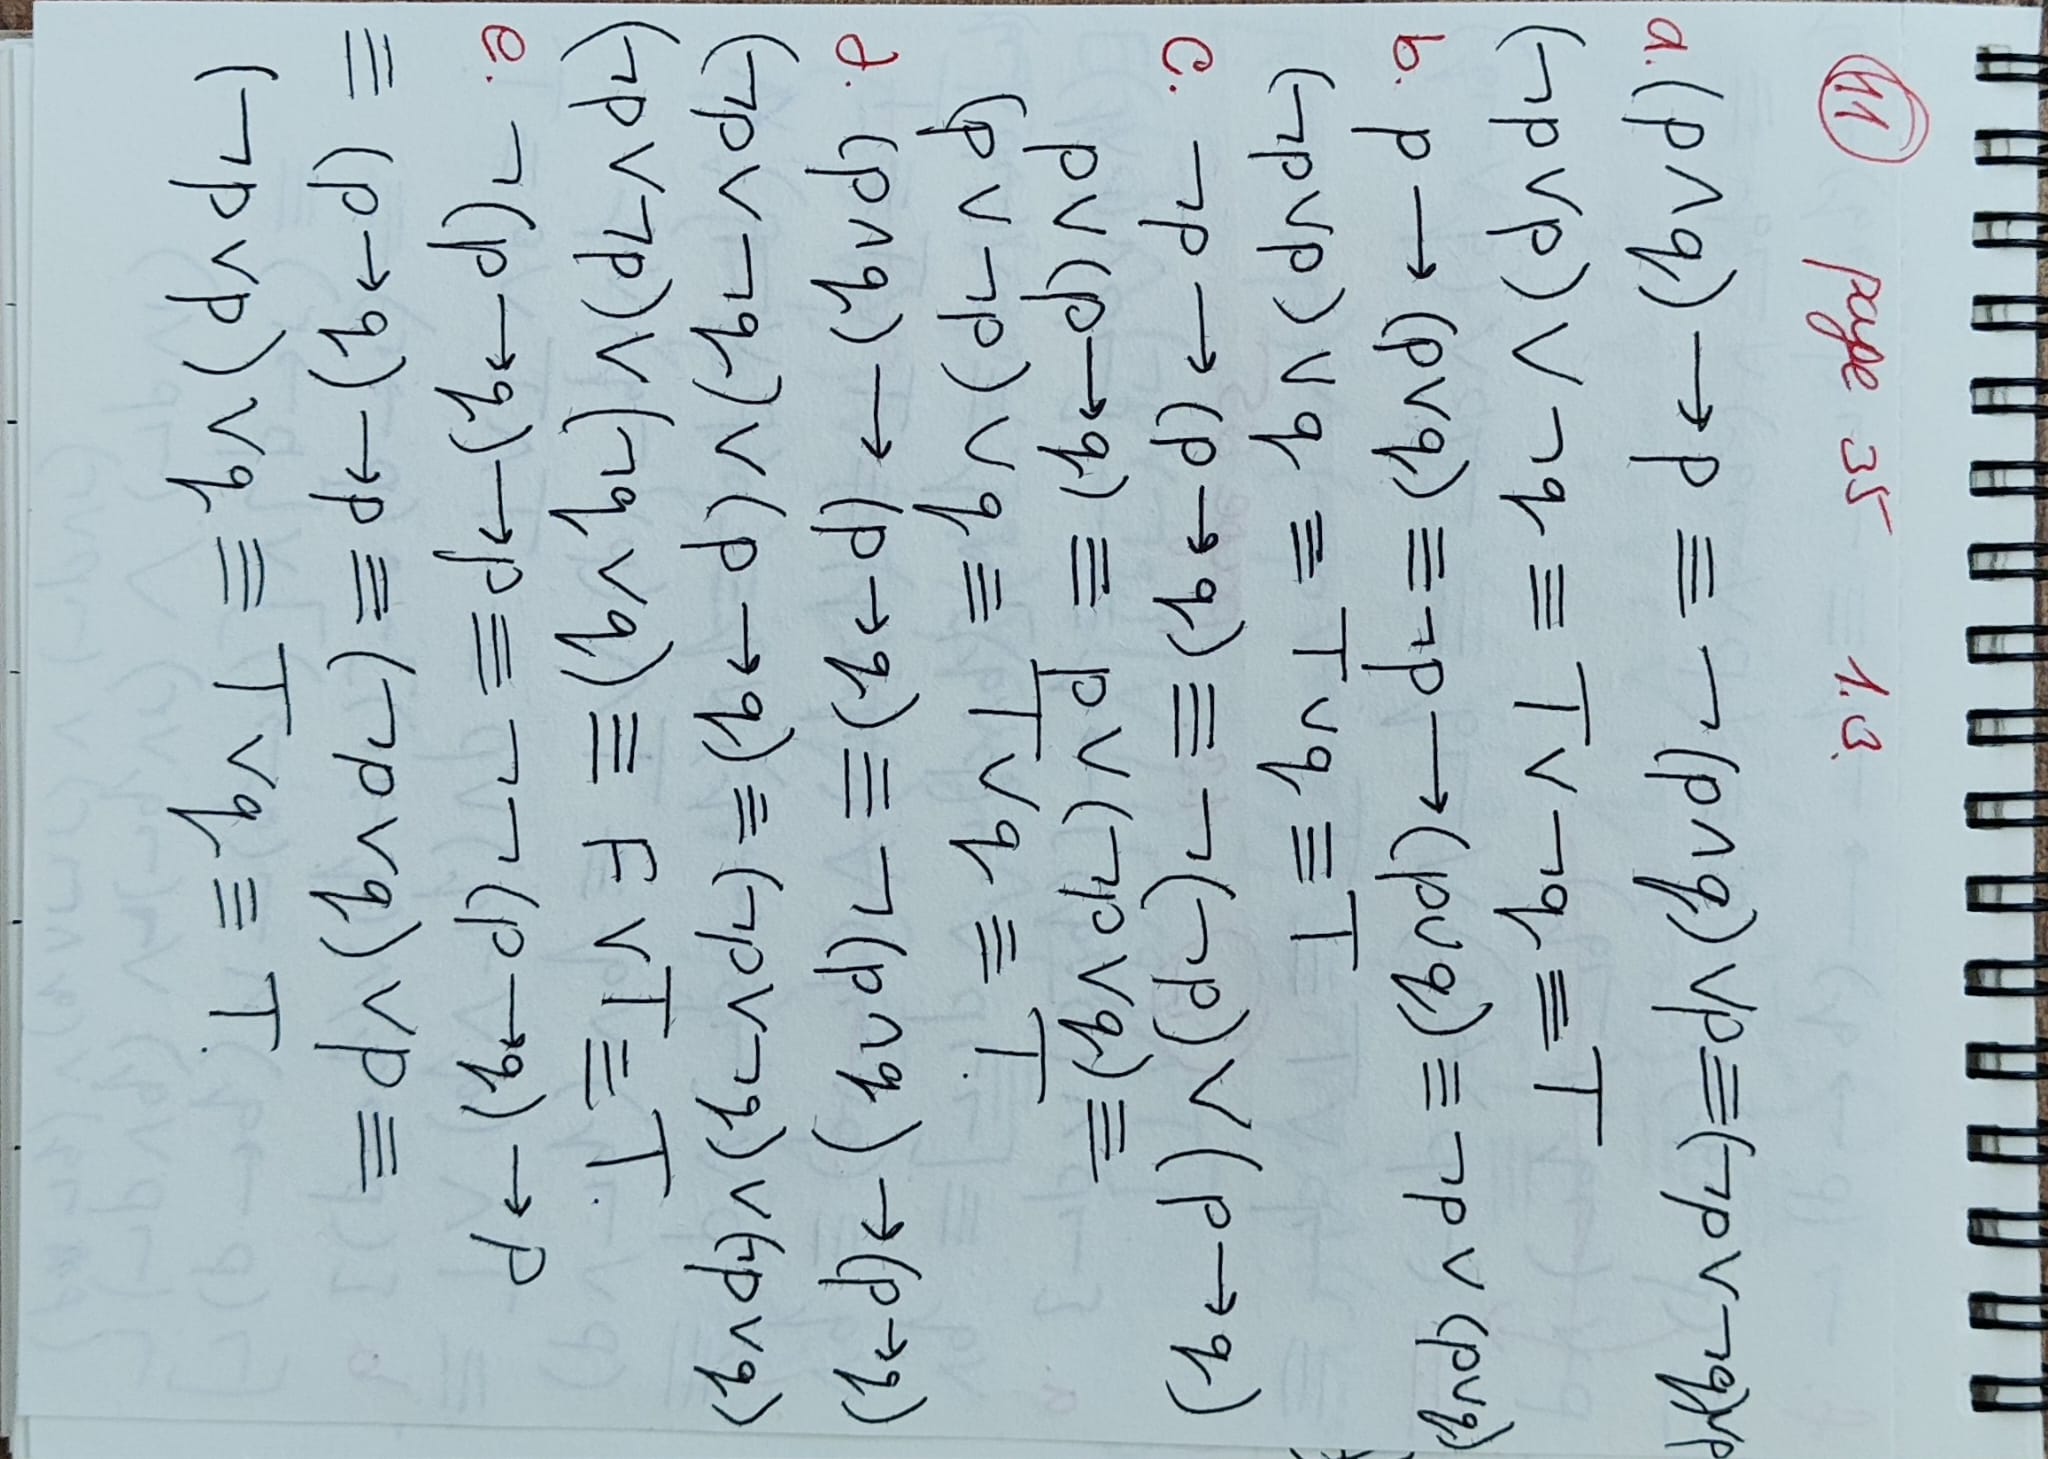 11 page 35 1.3.
a. (p ∧ q) → p ≡ ¬(p ∧ q) ∨ p ≡ (¬p ∨ ¬q) ∨ p
(¬p ∨ p) ∨ ¬q ≡ T ∨ ¬q ≡ T
b. p → (p ∨ q) ≡ ¬p → (p ∨ q) ≡ ¬p ∨ (p ∨ q)
(¬p ∨ p) ∨ q ≡ T ∨ q ≡ T
c. ¬p → (p → q) ≡ ¬(¬p) ∨ (p → q)
p ∨ (p → q) ≡ p ∨ (¬p ∨ q) ≡
(p ∨ ¬p) ∨ q ≡ T ∨ q ≡ T.
d. (p ∧ q) → (p → q) ≡ ¬(p ∧ q) → (p → q)
(¬p ∨ ¬q) ∨ (p → q) ≡ (¬p ∨ ¬q) ∨ (¬p ∨ q)
(¬p ∨ ¬p) ∨ (¬q ∨ q) ≡ F ∨ T ≡ T.
e. ¬(p → q) → p ≡ ¬¬(p → q) → p
≡ (p → q) → p ≡ (¬p ∨ q) ∨ p ≡
(¬p ∨ p) ∨ q ≡ T ∨ q ≡ T.